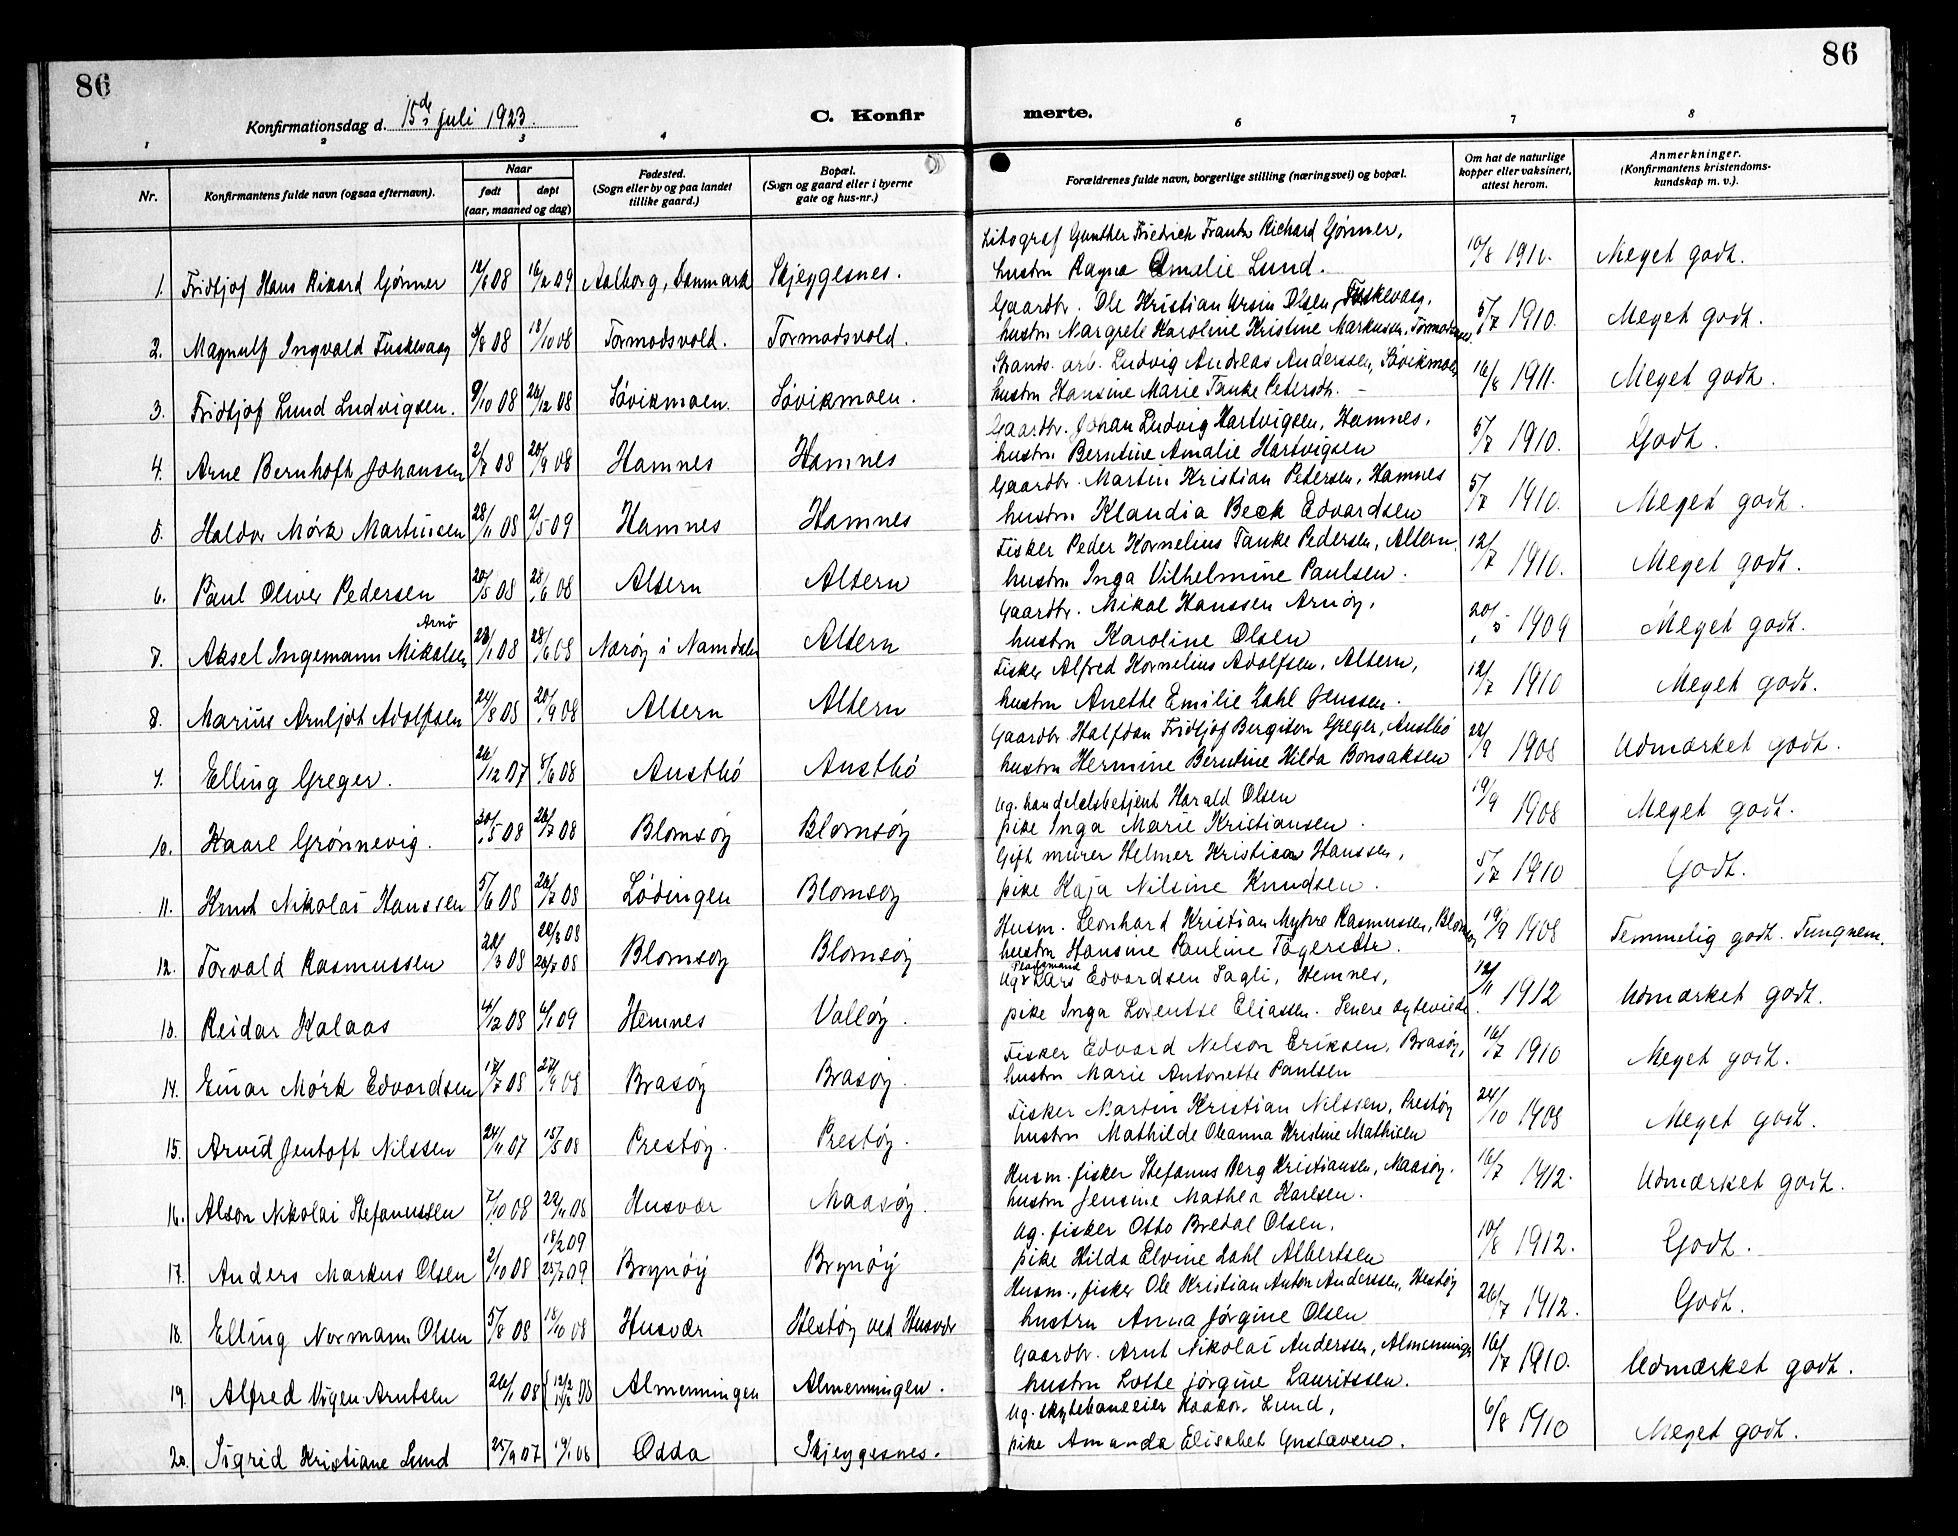 86
86
Konfirmationsdag d. 15de juli 1923.
C. Konfir
merte.
1 2 3 4 6 7 8
Nr.
Konfirmantens fulde navn (ogsaa efternavn).
Naar
født
døpt
(aar, maaned og dag)
Fødested.
(Sogn eller by og paa landet
tillike gaard.)
Bopæl.
(Sogn og gaard eller i byerne
gate og hus-nr.)
Forældrenes fulde navn, borgerlige stilling (næringsvei) og bopæl.
Om hat de naturlige
kopper eller vaksinert,
attest herom.
Anmerkninger.
(Konfirmantens kristendoms-
kundskap m. v.).
Litograf Gunther Friedrich Frantz Richard Gønner,
1. Fridtjof Hans Rikard Gønner 12/6 08 16/2 09 Aalborg, Danmark Skjeggesnes. hustru Ragna Amelie Lund. 10/8 1911. Meget godt.
Gaardbr. Ole Kristian Ursin Olsen, Fuskevaag,
2. Magnulf Ingvald Fuskevaag 3/8 08 18/10 08 Tormodsvold. Tormodsvold. hustru Nargrete Karoline Kristine Markussen, 5/7 1910. Meget godt.
Strands. arb. Ludvig Andreas Anderssen, Søvikmoen
3. Fridtjof Lund Ludvigsen. 9/10 08 26/12 08 Søvikmoen. Søvikmoen. hustru Hansine Marie Tanke Petersdtr. 16/8 1911. Meget godt.
Gaardbr. Johan Ludvig Hartvigsen, Hamnes,
4. Arne Bernhoft Johansen 2/7 08 20/9 08 Hamnes Hamnes hustru Berntine Amalie Hartvigsen 5/7 1910. Godt.
Gaardbr. Martin Kristian Petersen, Hamnes
5. Haldor Mørk Martinsen 28/11 08 2/5 09 Hamnes Hamnes hustru Klaudia Beck Edvardsen 5/7 1910. Meget godt.
Fisker Peder Kornelius Tanke Pedersen, Altern
6. Paul Oliver Pedersen 20/5 08 28/6 08 Altern Altern hustru Inga Vilhelmine Paulsen. 12/7 1910. Meget godt.
Arnö
Gaardbr. Mikal Hanssen Arnøy,
7. Aksel Ingemann Mikalsen /1 08 28/6 08 Nærøy i Namdalen Altern hustru Karoline Olsen 20/5 1909 Meget godt.
Fisker Alfred Kornelius Adolfsen, Altern,
8. Marius Arnljot Adolfsen 24/8 08 20/9 08 Altern Altern hustru Anette Emilie Dahl Jenssen. 12/7 1910 Meget godt.
Gaardbr. Halfdan Fridtjof Bergiton Greger, Austbø
9. Elling Greger. 26/12 07 8/6 08 Austbø Austbø hustru Hermine Berntine Hilda Bonsaksen 22/9 1908 Udmærket godt.
Ug. handelsbetjent Harald Olsen
10. Kaare Grønnevig. 30/5 08 26/7 08 Blomsøy Blomsøy pike Inga Marie Kristiansen. 19/9 1908 Meget godt.
Gift murer Helmer Kristian Hanssen,
11. Knut Nikolai Hanssen 5/6 08 26/7 08 Lødingen Blomsøy pike Kaja Nilsine Knudsen. 5/7 1910 Godt.
Husm. Leonhard Kristian Myhre Rasmussen, Blomsøy
12. Torvald Rasmussen 20/3 08 22/3 08 26/7 08 Blomsøy Blomsøy hustru Hansine Pauline Tøgersdtr. 19/9 1908 Temmelig godt. Tungnem.
Pladsmand
Ug. Lars Edvardsen Sagli, Hemnes,
13. Reidar Kalaas 4/12 08 6/1 09 Hemnes Valløy. pike Inga Lorentse Eliassen. Senere egteviede. 12/11 1912 Udmærket godt.
Fisker Edvard Nelson Eriksen, Brasøy,
14. Einar Mørk Edvardsen 17/7 08 27/9 08 Brasøy Brasøy. hustru Marie Antonette Paulsen 16/7 1910 Meget godt.
Fisker Martin Kristian Nilssen, Prestøy
15. Arvid Jentoft Nilssen 24/11 07 15/3 08 Prestøy. Prestøy. hustru Mathilde Oleanna Kristine Mathisen 24/10 1908 Meget godt.
Husm. fisker Stefanus Berg Kristiansen, Maasøy.
16. Alson Nikolai Stefanussen 7/10 08 22/11 08 Husvær Maasøy. hustru Jensine Mathea Karlsen. 16/7 1912. Udmærket godt.
Ug. fisker Otto Bredal Olsen,
17. Anders Markus Olsen 2/10 08 18/2 09 25/7 09 Brynøy Brynøy pike Hilda Elvine Dahl Albertsen 10/8 1912. Godt.
Husm., fisker Ole Kristian Anton Anderssen, Hestøy
18. Elling Normann Olsen 5/8 08 18/10 08 Husvær Hestøy ved Husvær hustru Anna Jørgine Olsen 26/7 1912. Godt.
Gaardbr. Arnt Nikolai Anderssen, Almenninge
19. Alfred Vigen Arntsen 26/1 08 12/2 08 Almenningen Almenningen. hustru Lotte Jørgine Lauritssen. 16/7 1910. Udmærket godt.
Ug. skytebaneeier Haakon Lund,
20. Sigrid Kristiane Lund 25/9 07 19/1 08 Odda Skjeggesnes. pike Amanda Elisabet Gustavsen. 6/8 1910 Meget godt.